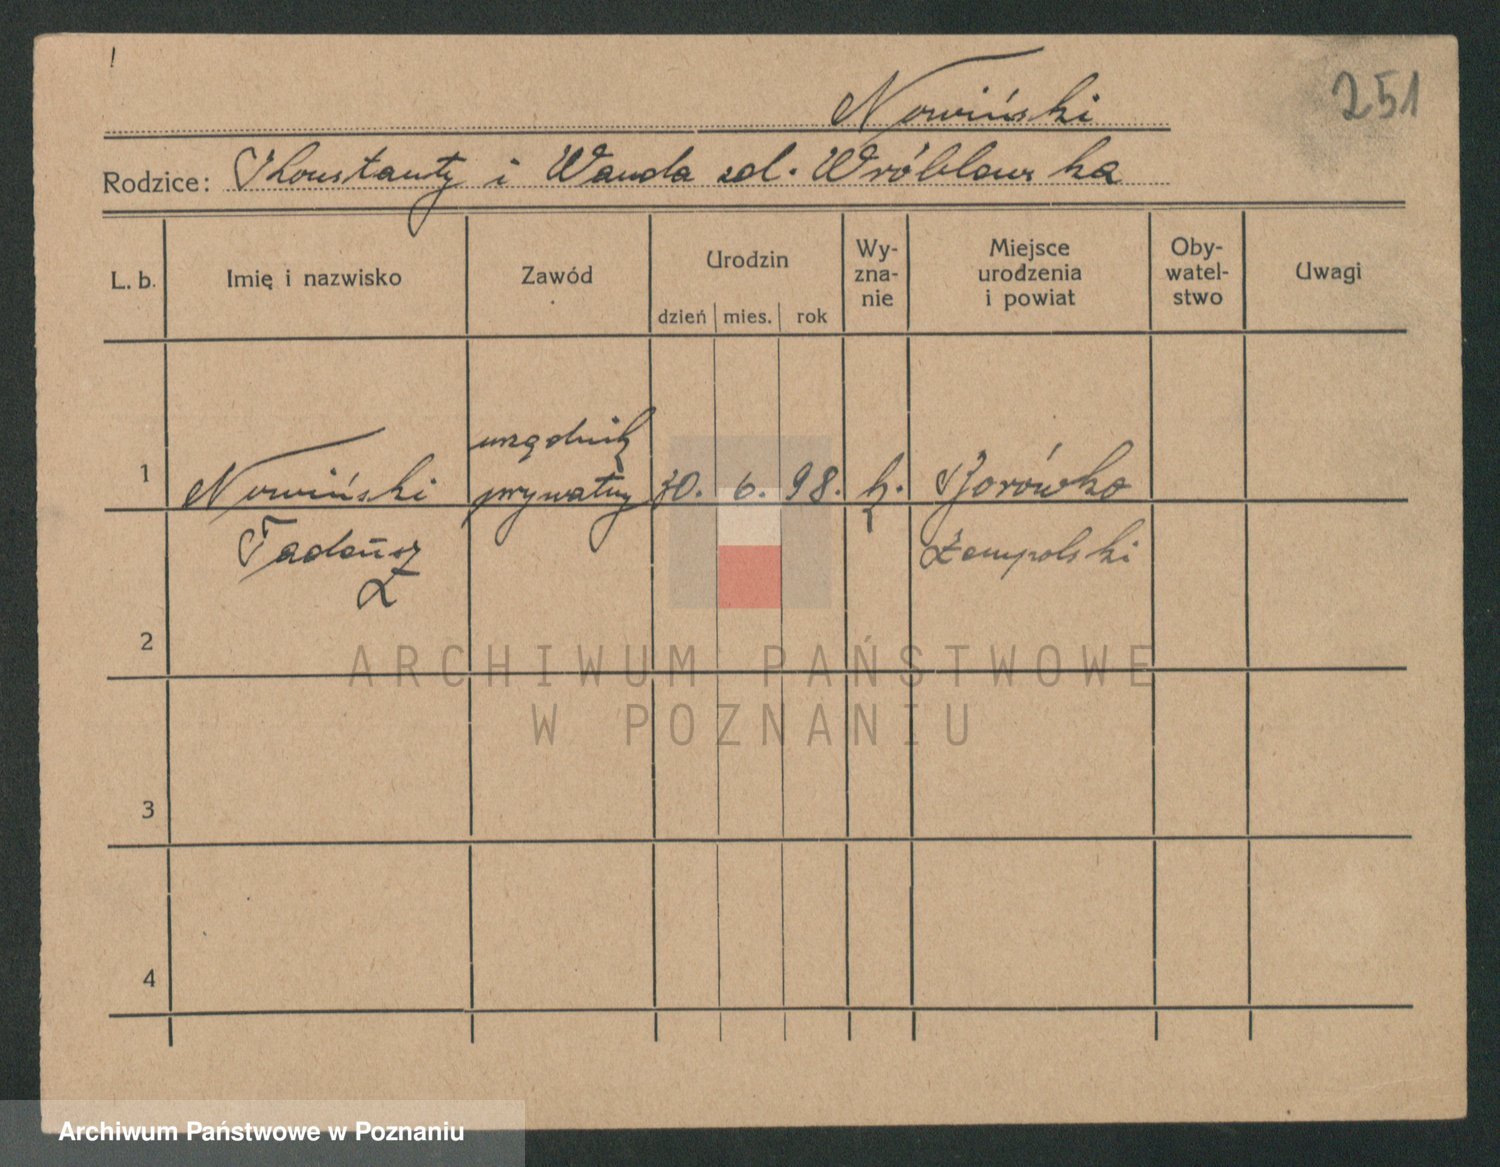 Nowiński
251
Rodzice: Konstanty i Wanda zd. Wróblewska
L. b.
Imię i nazwisko
Zawód
Urodzin
dzień mies. rok
Wy-
zna-
nie
Miejsce
urodzenia
i powiat
Oby-
watel-
stwo
Uwagi
1
Nowiński
Tadeusz
urzędnik
prywatny
30. 6. 98.
k.
Borówko
2
3
4
ARCHIWUM PAŃSTWOWE
W POZNANIU
Archiwum Państwowe w Poznaniu